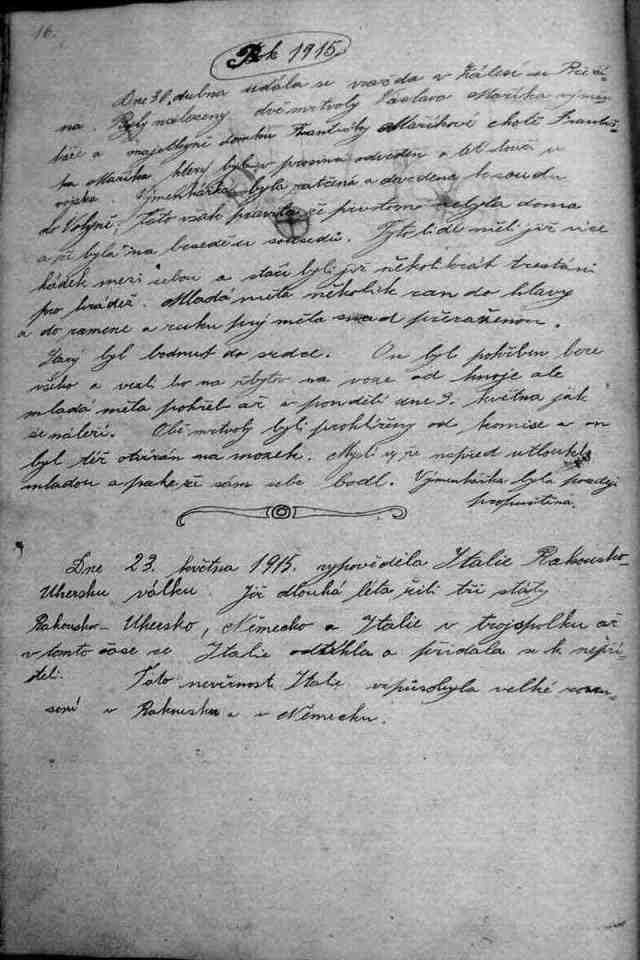 16.
Rok 1915
Dne 30. dubna udála se vražda v Zálesí u
na. Byly nalezeny dvě mrtvoly Václava Maříka výmin-
káře a majetkyně domku Františky Maříkové chotě Františ-
ka Maříka který byl v prosinci odveden a též loví u
vojska. Výminkářka byla zatčena a dovedena k soudu
do Volyně. Tato však pravila že přitom nebyla doma
a že byla na besedě u sousedů. Tyto lidé měli již více
hádek mezi sebou a staří byli již několikrát trestáni
pro krádež. Mladá měla několik ran do hlavy
a do ramene a ruku prý měla snad přeraženou.
Starý byl bodnut do srdce. On byl pohřben beze
všeho a vezli ho na hřbitov na voze od hnoje ale
mladá měla pohřeb až v pondělí dne 3. května jak
se náleží. Obě mrtvoly byli prohlíženy od komise a on
byl též otvírán na mozek. Myslí se, že nejpřed utloukl
mladou a pak že sám sebe bodl. Výminkářka byla později
propuštěna.
Dne 23. května 1915. vypověděla Italie Rakousko-
Uhersku válku. Již dlouhá léta žili tři státy
Rakousko-Uhersko, Německo a Italie v trojspolku až
v tomto čase se Italie odtrhla a přidala se k nepřá-
teli. Tato nevěrnost Italie způsobyla velké rozru-
šení v Rakousku a v Německu.